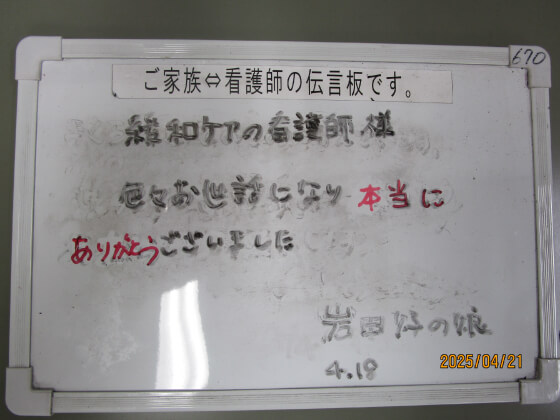 670
ご家族⇔看護師の伝言板です。
緩和ケアの看護師様
色々お世話になり 本当に
ありがとうございました
岩田 の娘
4.18
2025/04/21